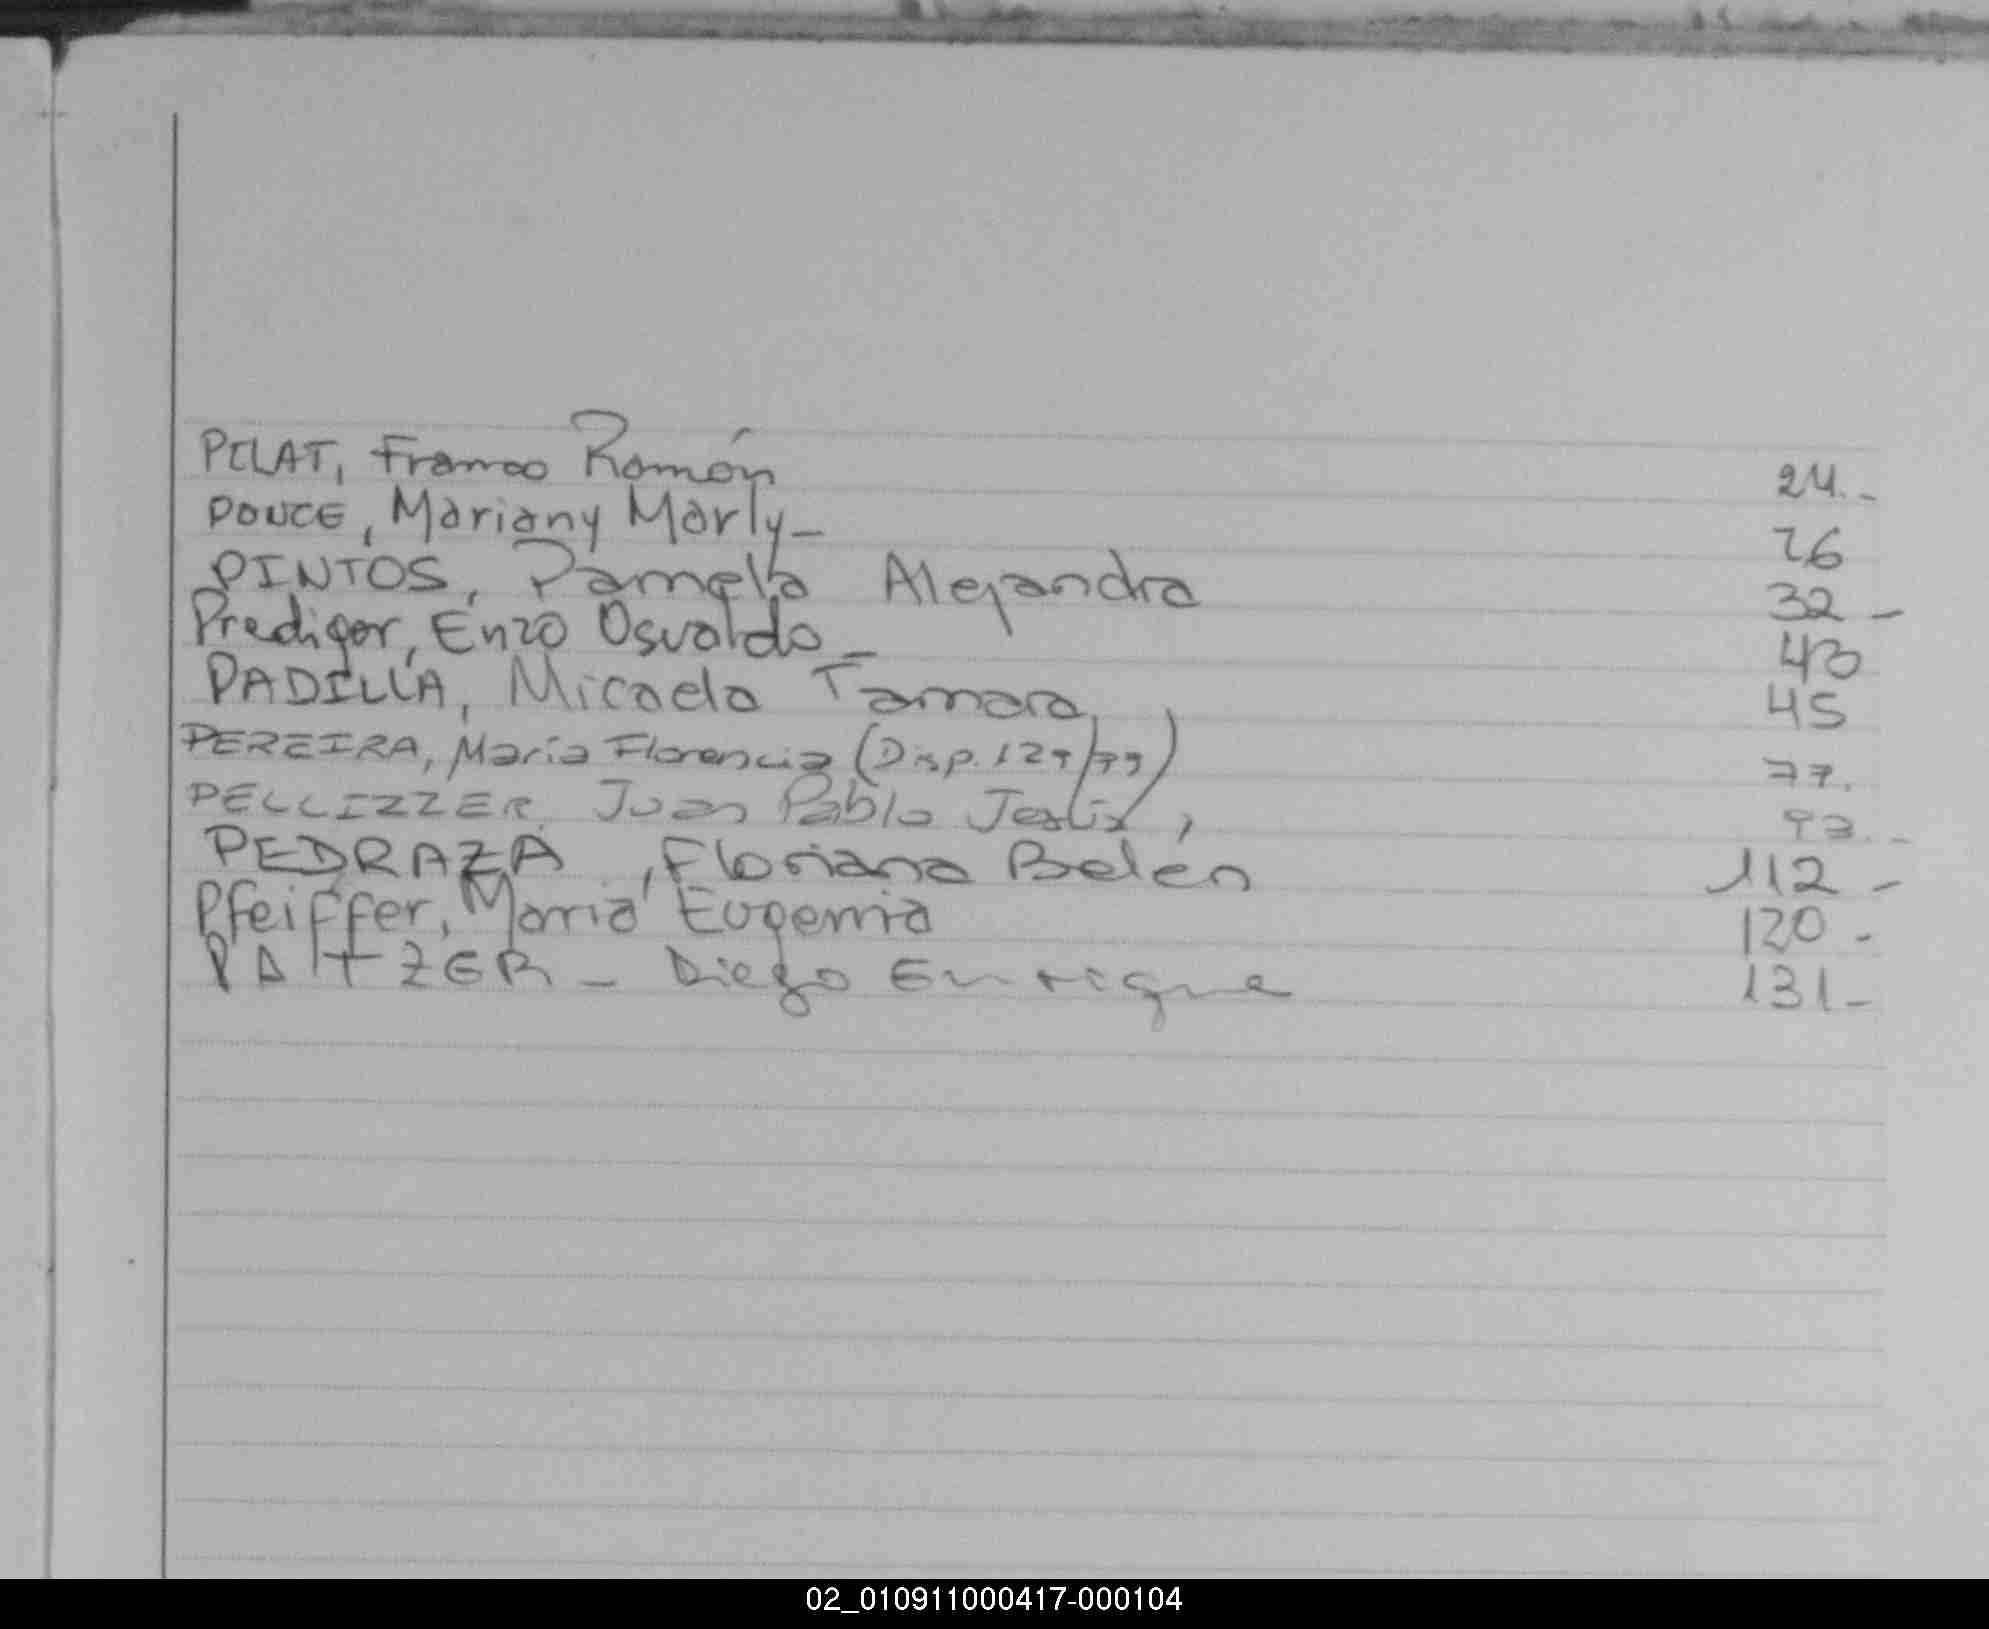 PELAT, Franco Ramón 24.-
PONCE, Mariany Marly_ 26
PINTOS, Pamela Alejandra 32 -
Prediger, Enzo Osvaldo_ 43
PADILLA, Micaela Tamara, 45
PEREIRA, María Florencia (Disp. 129/99) 77.
PELLIZZER Juan Pablo Jesús, 93.-
PEDRAZA, Floriana Belén 112 -
Pfeiffer, María Eugenia 120 -
PALTZER - Diego Enrique 131-
02_010911000417-000104